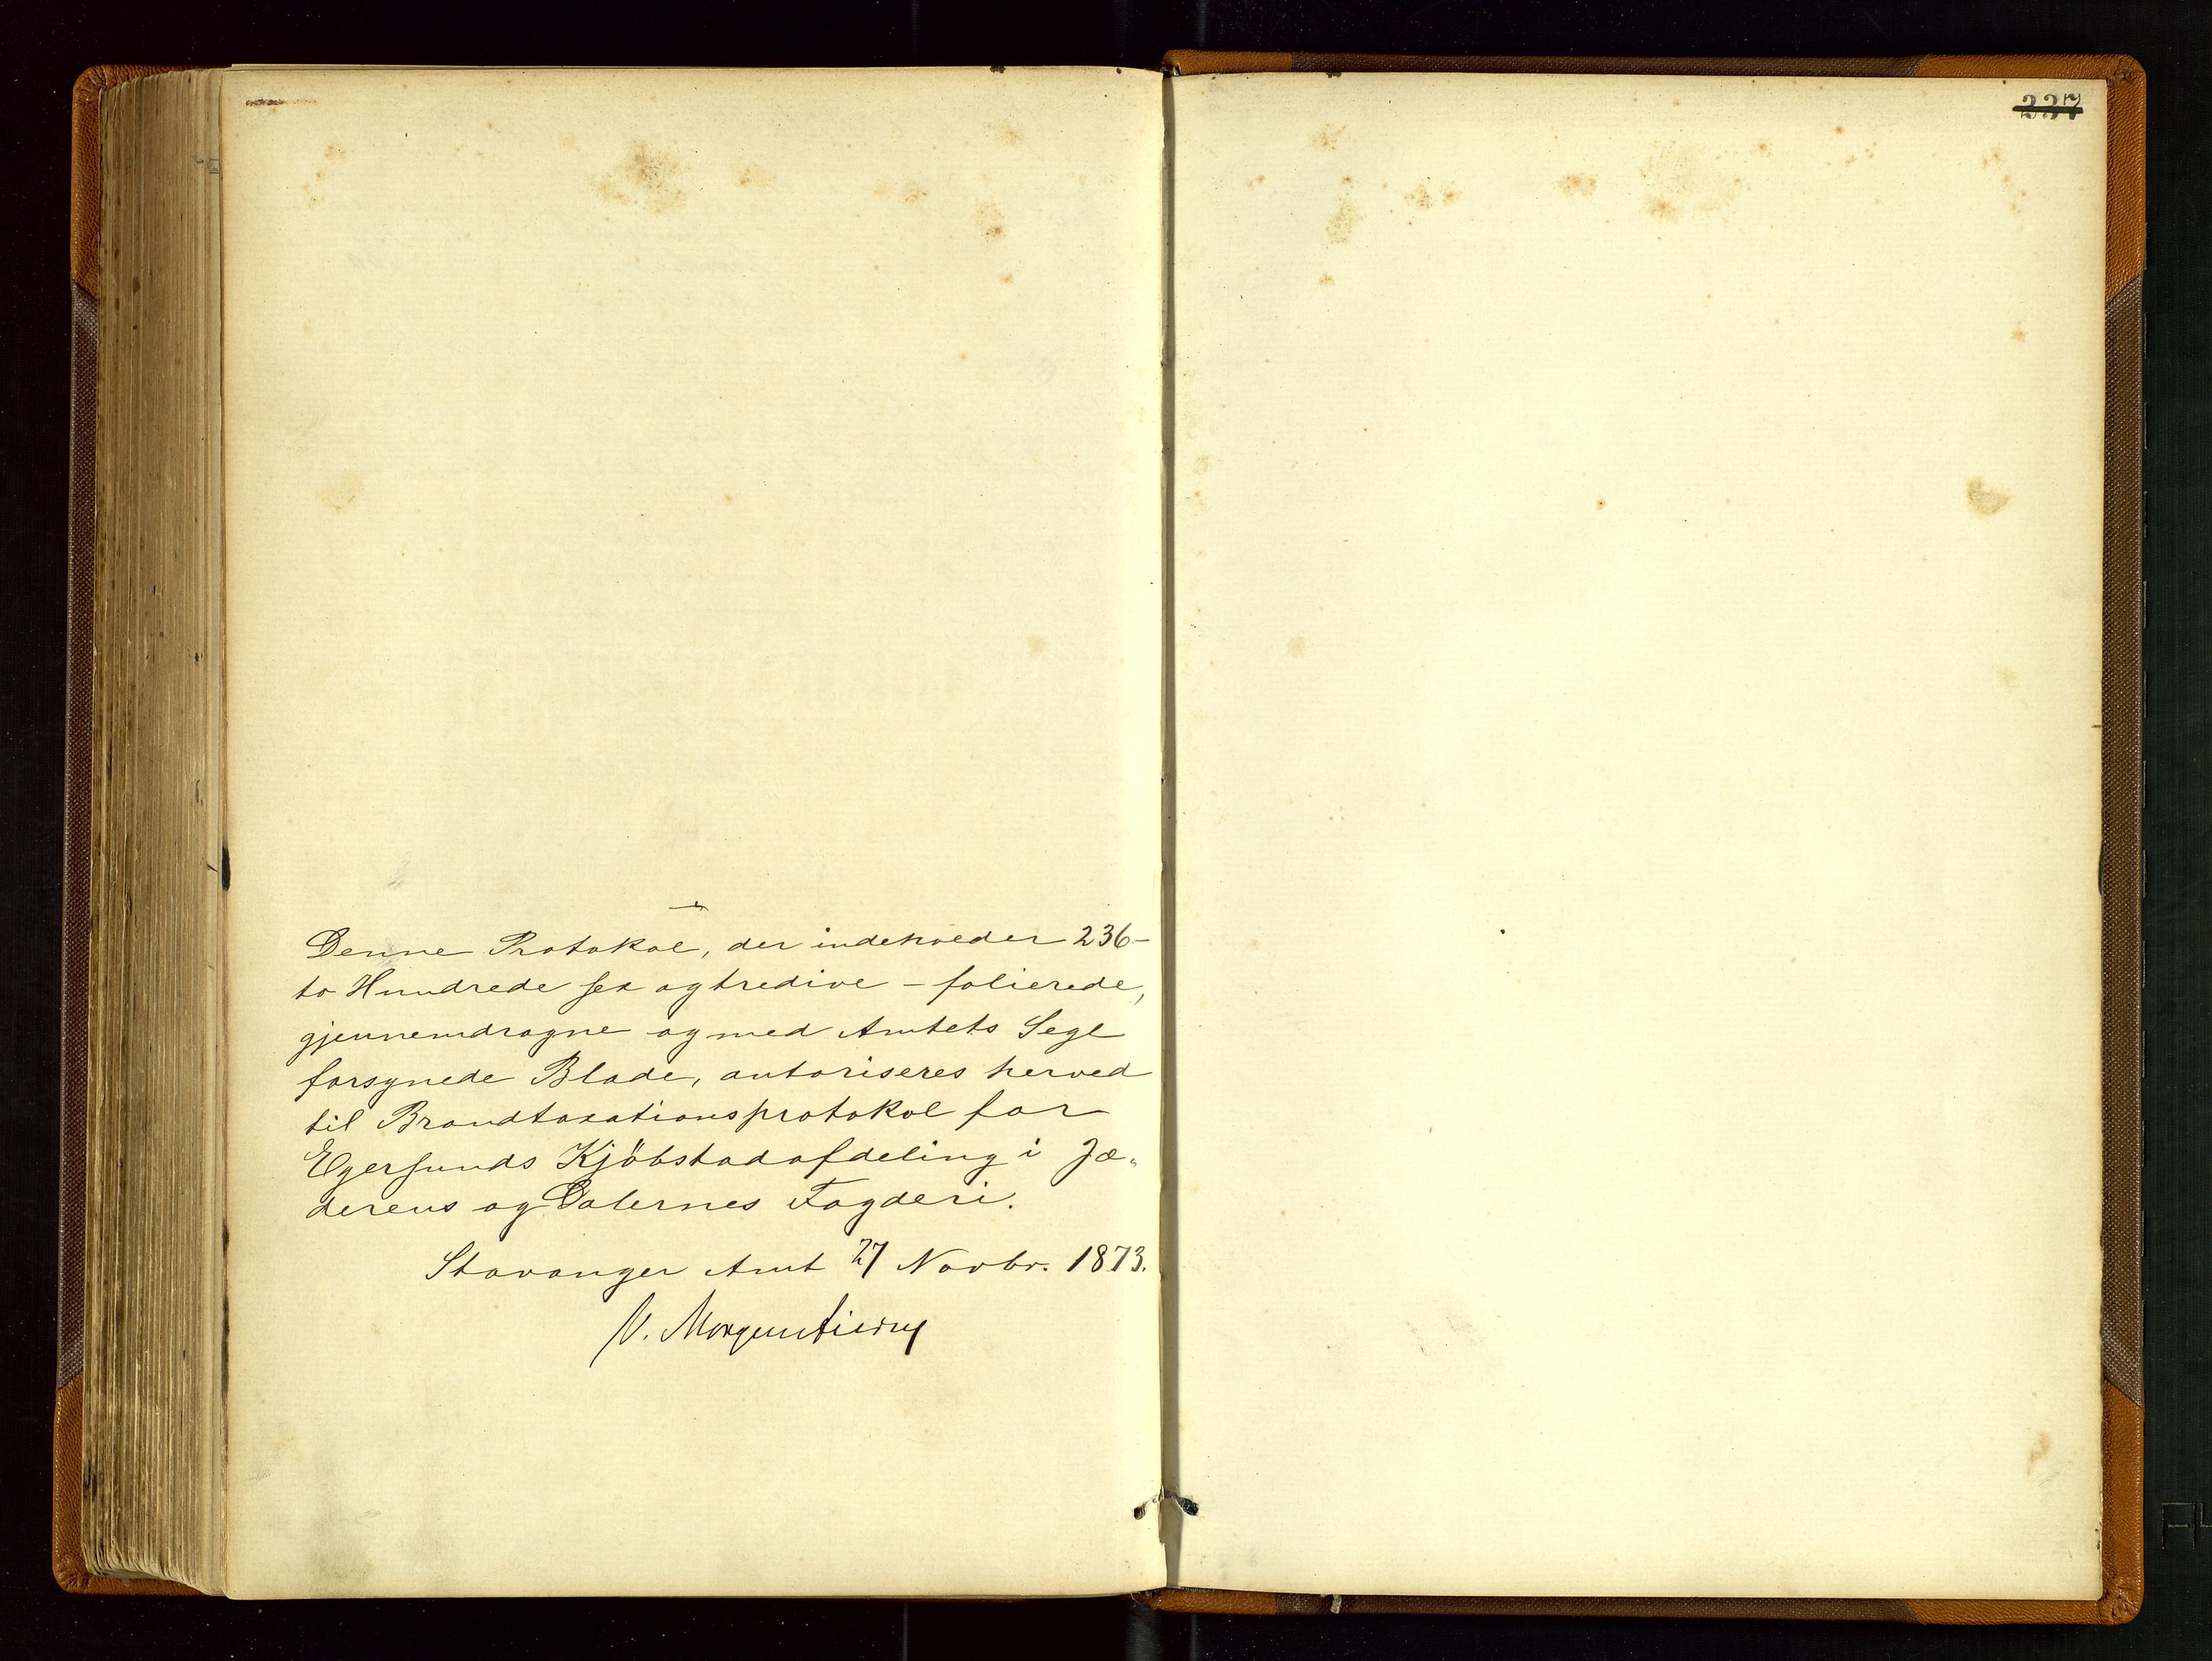 237
Denne Protokol, der indeholder 236-
to Hundrede sex og tredive - folierede,
gjennemdragne og med Amtets Segl
forsynede Blade, autoriseres herved
til Brandtaxationsprotokol for
Egersunds Kjöbstadafdeling i Jæ„
derens og Dalernes Fogderi.
Stavanger Amt 27 Novbr. 1873.
V. Morgenstierne